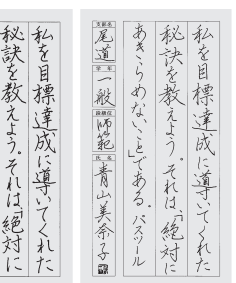 私を目標達成に導いてくれた
秘訣を教えよう。それは、「絶対に
あきらめないこと」である。パスツール
支部名 尾道 学年 一般 段級位 師範 氏名 青山美奈子
私を目標達成に導いてくれた
秘訣を教えよう。それは、「絶対に